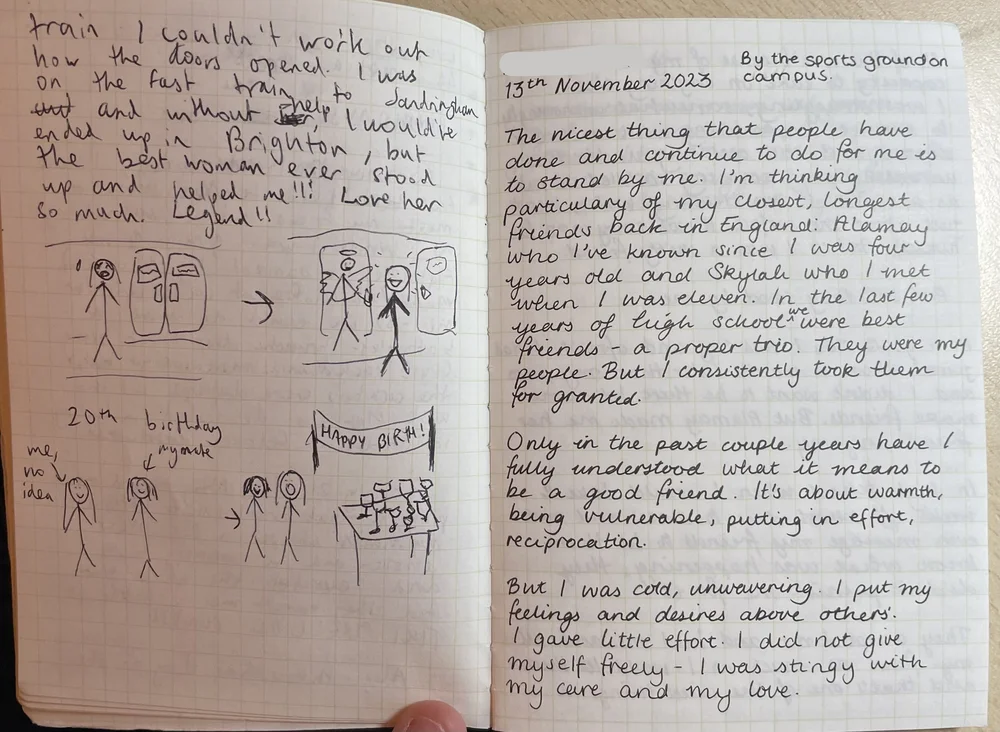 train I couldn't work out
how the doors opened. I was
on the fast train to Sandringham
and without help I would've
ended up in Brighton, but
the best woman ever stood
up and helped me!!! Love her
so much. Legend!!
20th birthday
me,
no
idea
my mate
HAPPY BIRTH!
By the sports ground on
campus.
13th November 2023
The nicest thing that people have
done and continue to do for me is
to stand by me. I'm thinking
particulary of my closest, longest
friends back in England: Alamay
who I've known since I was four
years old and Skylah who I met
when I was eleven. In the last few
years of high school we were best
friends - a proper trio. They were my
people. But I consistently took them
for granted.
Only in the past couple years have I
fully understood what it means to
be a good friend. It's about warmth,
being vulnerable, putting in effort,
reciprocation.
But I was cold, unwavering. I put my
feelings and desires above others'.
I gave little effort. I did not give
myself freely - I was stingy with
my care and my love.